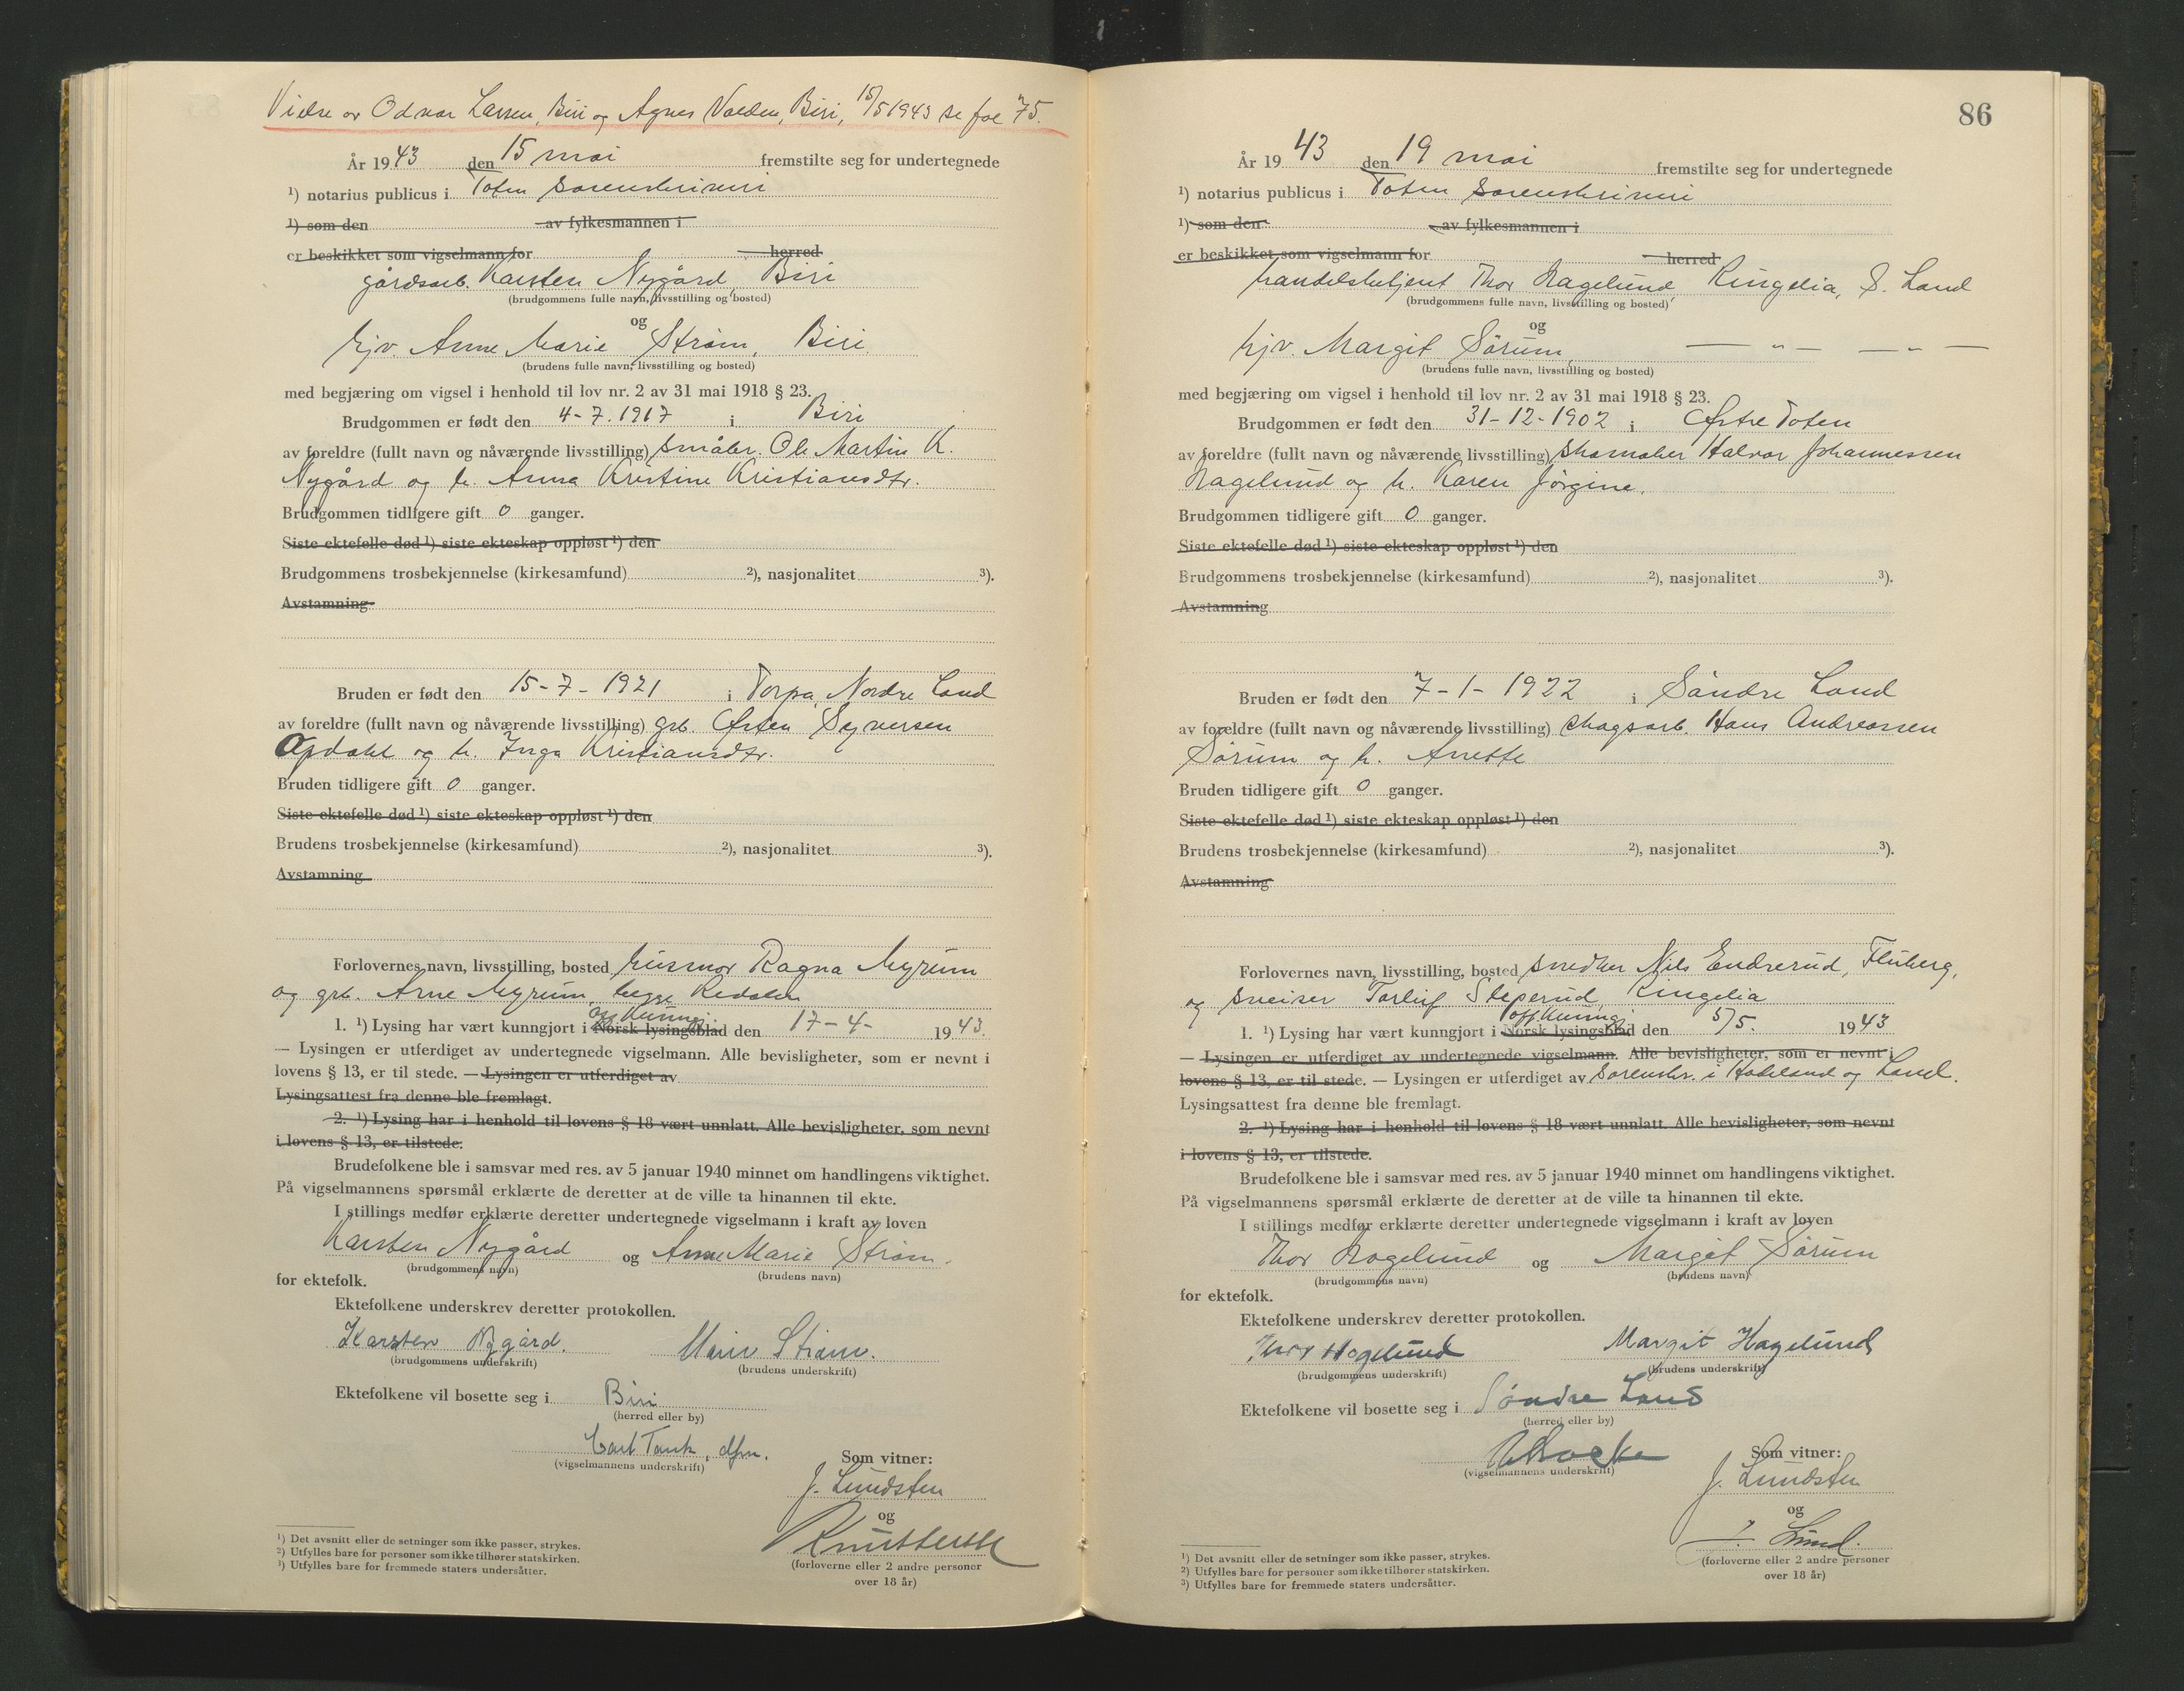 Vielse av Odvar Larsen, Biri og Agnes Valden, Biri, 15/5 1943 se fol 75.
År 1943 den 15 mai fremstilte seg for undertegnede
¹) notarius publicus i Toten sorenskriveri
¹) som den av fylkesmannen i
er beskikket som vigselmann for herred
gårdsarb. Karsten Nygård, Biri
(brudgommens fulle navn, livsstilling og bosted)
og
hjv. Anne Marie Strøm, Biri
(brudens fulle navn, livsstilling og bosted)
med begjæring om vigsel i henhold til lov nr. 2 av 31 mai 1918 § 23.
Brudgommen er født den 4-7.1917 i Biri
av foreldre (fullt navn og nåværende livsstilling) småbr. Ole Martin K.
Nygård og h. Anna Kristine Kristiansdtr.
Brudgommen tidligere gift 0 ganger.
Siste ektefelle død ¹) siste ekteskap oppløst ¹) den
Brudgommens trosbekjennelse (kirkesamfund) ²), nasjonalitet ³).
Avstamning
Bruden er født den 15-7-1921 i Torpa, Nordre Land
av foreldre (fullt navn og nåværende livsstilling) grb. Østen Syversen
Opdahl og h. Inga Kristiansdtr.
Bruden tidligere gift 0 ganger.
Siste ektefelle død ¹) siste ekteskap oppløst ¹) den
Brudens trosbekjennelse (kirkesamfund) ²), nasjonalitet ³).
Avstamning
Forlovernes navn, livsstilling, bosted husmor Ragna Myrum
og grb. Arne Myrum, begge Redalen
off. kunngj.
1. ¹) Lysing har vært kunngjort i Norsk lysingsblad den 17-4- 1943.
— Lysingen er utferdiget av undertegnede vigselmann. Alle bevisligheter, som er nevnt i
lovens § 13, er til stede. — Lysingen er utferdiget av
Lysingsattest fra denne ble fremlagt.
2. ¹) Lysing har i henhold til lovens § 18 vært unnlatt. Alle bevisligheter, som nevnt
i lovens § 13, er tilstede.
Brudefolkene ble i samsvar med res. av 5 januar 1940 minnet om handlingens viktighet.
På vigselmannens spørsmål erklærte de deretter at de ville ta hinannen til ekte.
I stillings medfør erklærte deretter undertegnede vigselmann i kraft av loven
Karsten Nygård og Anne Marie Strøm.
(brudgommens navn) (brudens navn)
for ektefolk.
Ektefolkene underskrev deretter protokollen.
Karsten Nygård. Marie Strøm.
(brudgommens underskrift) (brudens underskrift)
Ektefolkene vil bosette seg i Biri
(herred eller by)
Carl Tank, dfm.
(vigselmannens underskrift)
Som vitner:
J. Lundsten
og
(forloverne eller 2 andre personer
over 18 år)
¹) Det avsnitt eller de setninger som ikke passer, strykes.
²) Utfylles bare for personer som ikke tilhører statskirken.
³) Utfylles bare for fremmede staters undersåtter.
86
År 1943 den 19 mai fremstilte seg for undertegnede
¹) notarius publicus i Toten sorenskriveri
¹) som den av fylkesmannen i
er beskikket som vigselmann for herred
handelsbetjent Thor Hagelund, Ringelia, S. Land
(brudgommens fulle navn, livsstilling og bosted)
og
hjv. Margit Sørum, — " — — " —
(brudens fulle navn, livsstilling og bosted)
med begjæring om vigsel i henhold til lov nr. 2 av 31 mai 1918 § 23.
Brudgommen er født den 31-12-1902 i Østre Toten
av foreldre (fullt navn og nåværende livsstilling) skomaker Halvor Johannessen
Hagelund og h. Karen Jørgine.
Brudgommen tidligere gift 0 ganger.
Siste ektefelle død ¹) siste ekteskap oppløst ¹) den
Brudgommens trosbekjennelse (kirkesamfund) ²), nasjonalitet ³).
Avstamning
Bruden er født den 7-1-1922 i Søndre Land
av foreldre (fullt navn og nåværende livsstilling) skogsarb. Hans Andreassen
Sørum og h. Anette
Bruden tidligere gift 0 ganger.
Siste ektefelle død ¹) siste ekteskap oppløst ¹) den
Brudens trosbekjennelse (kirkesamfund) ²), nasjonalitet ³).
Avstamning
Forlovernes navn, livsstilling, bosted snedker Nils Endrerud, Fluberg,
og sveiser Torleif Steperud, Ringelia
off. kunngj.
1. ¹) Lysing har vært kunngjort i Norsk lysingsblad den 5/5. 1943
— Lysingen er utferdiget av undertegnede vigselmann. Alle bevisligheter, som er nevnt i
lovens § 13, er til stede. — Lysingen er utferdiget av Sorenskr. i Hadeland og Land.
Lysingsattest fra denne ble fremlagt.
2. ¹) Lysing har i henhold til lovens § 18 vært unnlatt. Alle bevisligheter, som nevnt
i lovens § 13, er tilstede.
Brudefolkene ble i samsvar med res. av 5 januar 1940 minnet om handlingens viktighet.
På vigselmannens spørsmål erklærte de deretter at de ville ta hinannen til ekte.
I stillings medfør erklærte deretter undertegnede vigselmann i kraft av loven
Thor Hagelund og Margit Sørum
(brudgommens navn) (brudens navn)
for ektefolk.
Ektefolkene underskrev deretter protokollen.
Thor Hagelund Margit Hagelund
(brudgommens underskrift) (brudens underskrift)
Ektefolkene vil bosette seg i Søndre Land
(herred eller by)
(vigselmannens underskrift)
Som vitner:
J. Lundsten
og
Lund.
(forloverne eller 2 andre personer
over 18 år)
¹) Det avsnitt eller de setninger som ikke passer, strykes.
²) Utfylles bare for personer som ikke tilhører statskirken.
³) Utfylles bare for fremmede staters undersåtter.